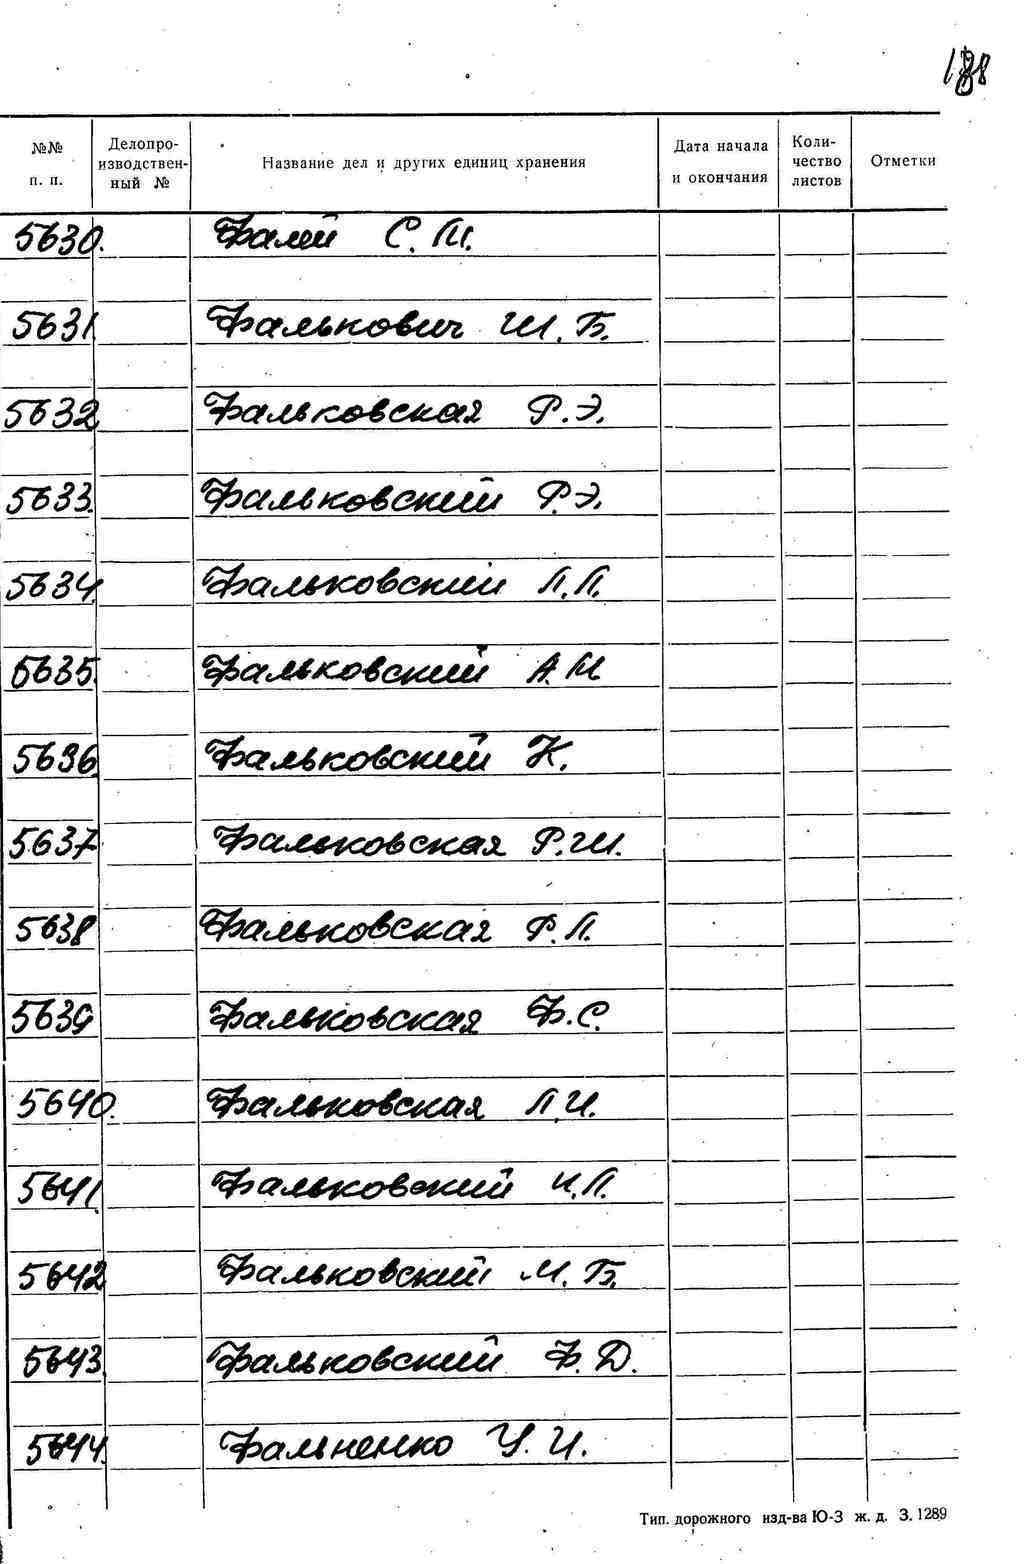 188
№№ п. п. Делопроизводственный № Название дел и других единиц хранения Дата начала и окончания Количество листов Отметки
5630. Фалей С. М.
5631 Фалькович Ш. Б.
5632 Фальковская Р. Э.
5633. Фальковский Р. Э.
5634. Фальковский Л. Л.
5635. Фальковский А. М.
5636 Фальковский К.
5637 Фальковская Р. Ш.
5638 Фальковская Р. Л.
5639 Фальковская Ф. С.
5640. Фальковская Л. И.
5641. Фальковский И. Л.
5642 Фальковский М. Б.
5643. Фальковский Ф. Д.
5644. Фальненко У. И.
Тип. дорожного изд-ва Ю-З ж. д. З. 1289